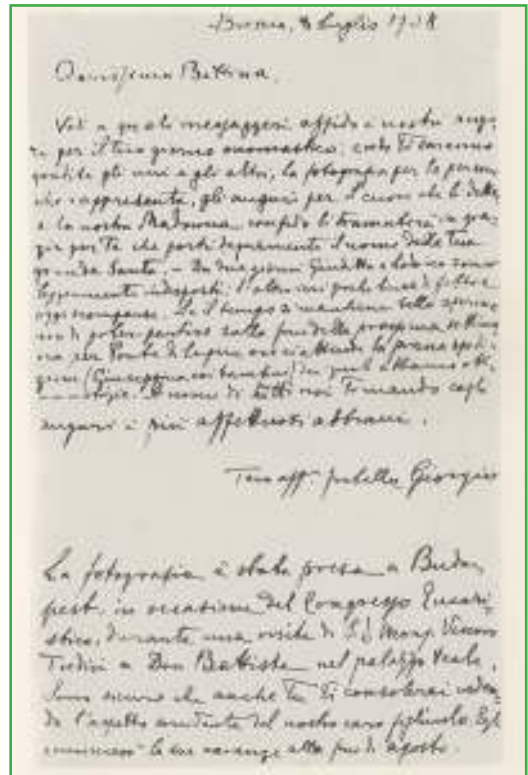 Brescia, 8 luglio 1938
Carissima Bettina,
Vedi a quali messaggeri affido i nostri augu-
ri per il tuo giorno onomastico: credo Ti saranno
gradite gli uni e gli altri, la fotografia per la persona
che rappresenta, gli auguri per il cuore che li detta
e la nostra Madonna confido li tramuterà in gra-
zie per te che porti degnamente il nome della tua
grande Santa. - Da due giorni Giuditta e Lodovico sono
leggermente indisposti: l'altro ieri poche linee di febbre
oggi scomparse. Se il tempo si mantiene bello
di poter partire sulla fine della prossima settima
na per Ponte di Legno ove ci attende la prima
(Giuseppina coi bambini) dei quali abbiamo
notizie. A nome di tutti noi Ti mando cogli
auguri i più affettuosi abbracci.
Tuo aff. fratello Giorgio
La fotografia è stata presa a Buda
pest, in occasione del Congresso Eucari
stico, durante una visita di S. E. Mons. Vescovo
Tredici a Don Battista nel palazzo reale.
Sono sicuro che anche Tu Ti consolerai veden
do l'aspetto del nostro caro figliuolo. Egli
comincierà le sue vacanze alla fine di agosto.